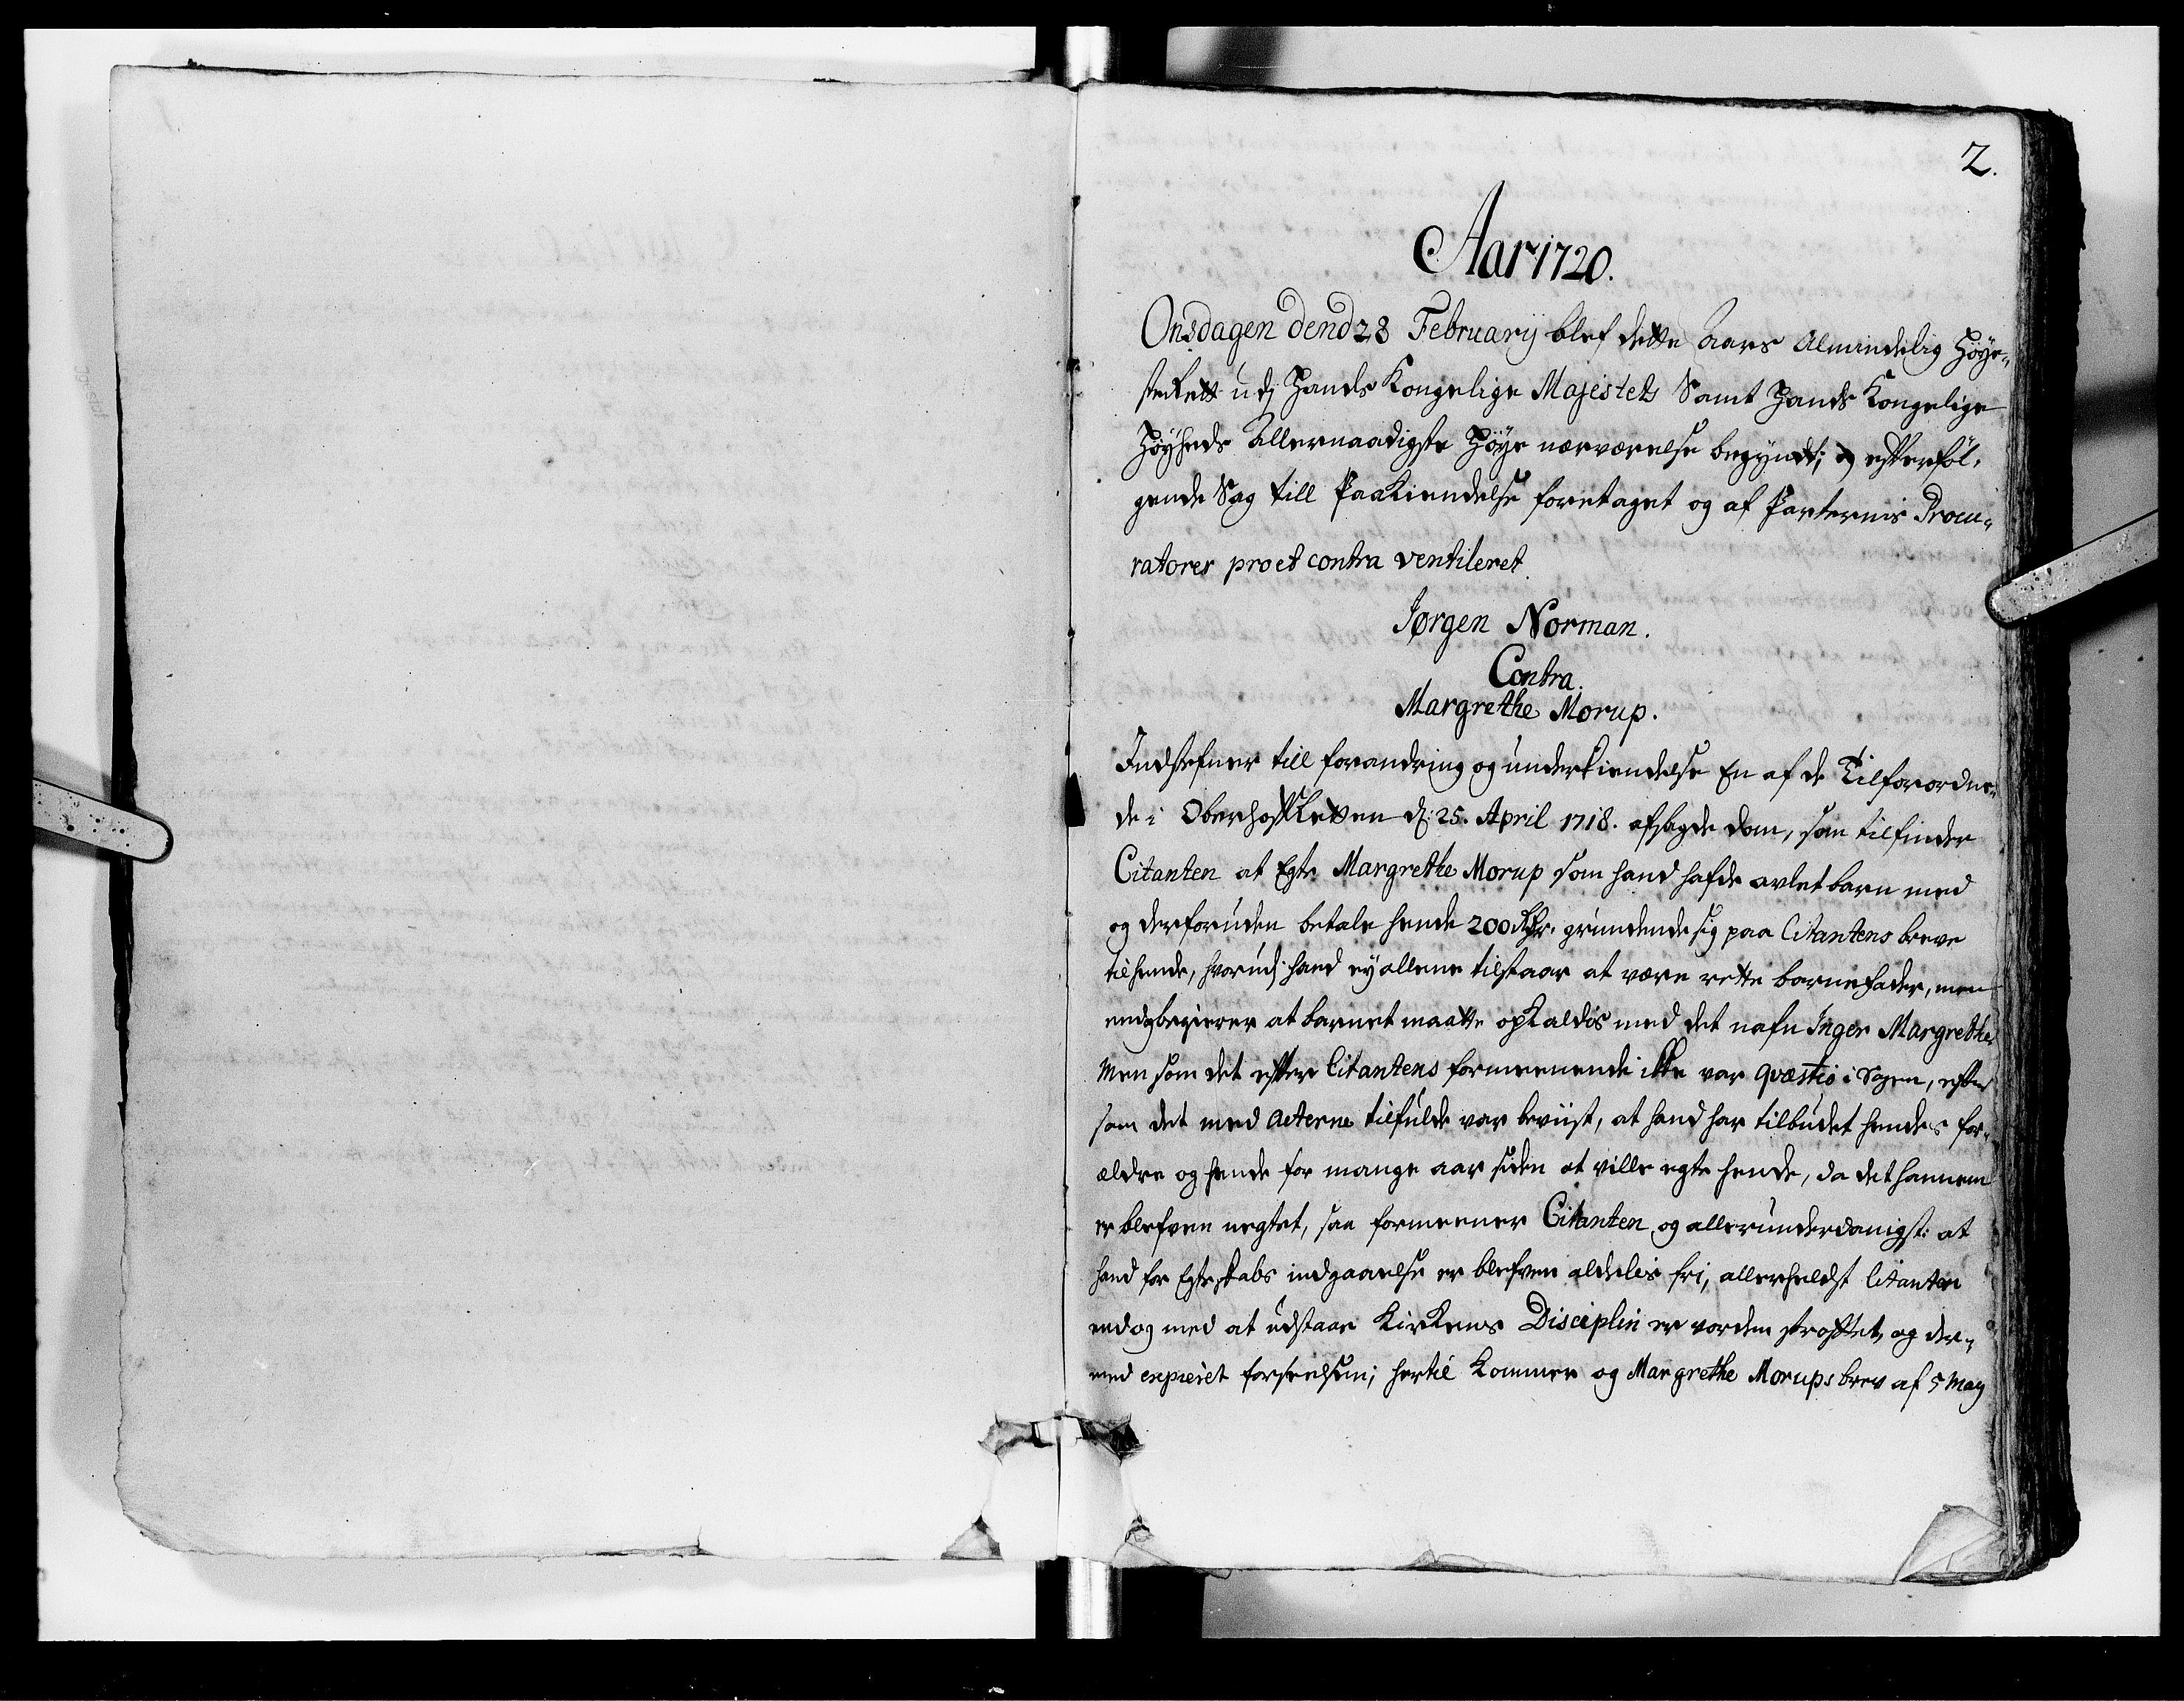 2.
Aar 1720.
Onsdagen dend 28 Februarij blef dette Aars Almindelig Høye-
ste Rett udj Hands Kongelige Majestets Samt Hands Kongelige
Høyheds Allernaadigste Høye nærværelse begyndt; og efterföl-
gende Sag till Paakiendelse foretaget og af Parternis Procu-
ratorer pro et contra ventileret
Jørgen Norman.
Contra.
Margrethe Morup.
Indstefner till forandring og underkiendelse En af de Tilforordne-
de i OberhofRetten d: 25. April 1718. afsagde dom, som tilfinder
Citanten at Egte Margrethe Morup som hand hafde avlet barn med
og derforuden betale hende 200 Rdr. grundende sig paa Citantens breve
til hende, hvorudj hand ey allene tilstaar at være rette barnefader, men
endog begierer at barnet maatte opkaldis med det nafn Inger Margrethe,
Men som det efter Citantens formeenende ikke var qvæstio i Sagen, efter
som det med Acterne tilfulde var beviist, at hand har tilbudet hendes for-
ældre og hende for mange aar siden at ville egte hende, da det hannem
er blefven negtet, saa formeener Citanten og allerunderdanigst: at
hand for Egteskabs indgaaelse er blefven aldelis fri, allerhelst Citanten
endog med at udstaae Kirkens Disciplin er vorden straffet, og der-
med expieret forseelsen; hertil kommer og Margrethe Morups brev af 5 May